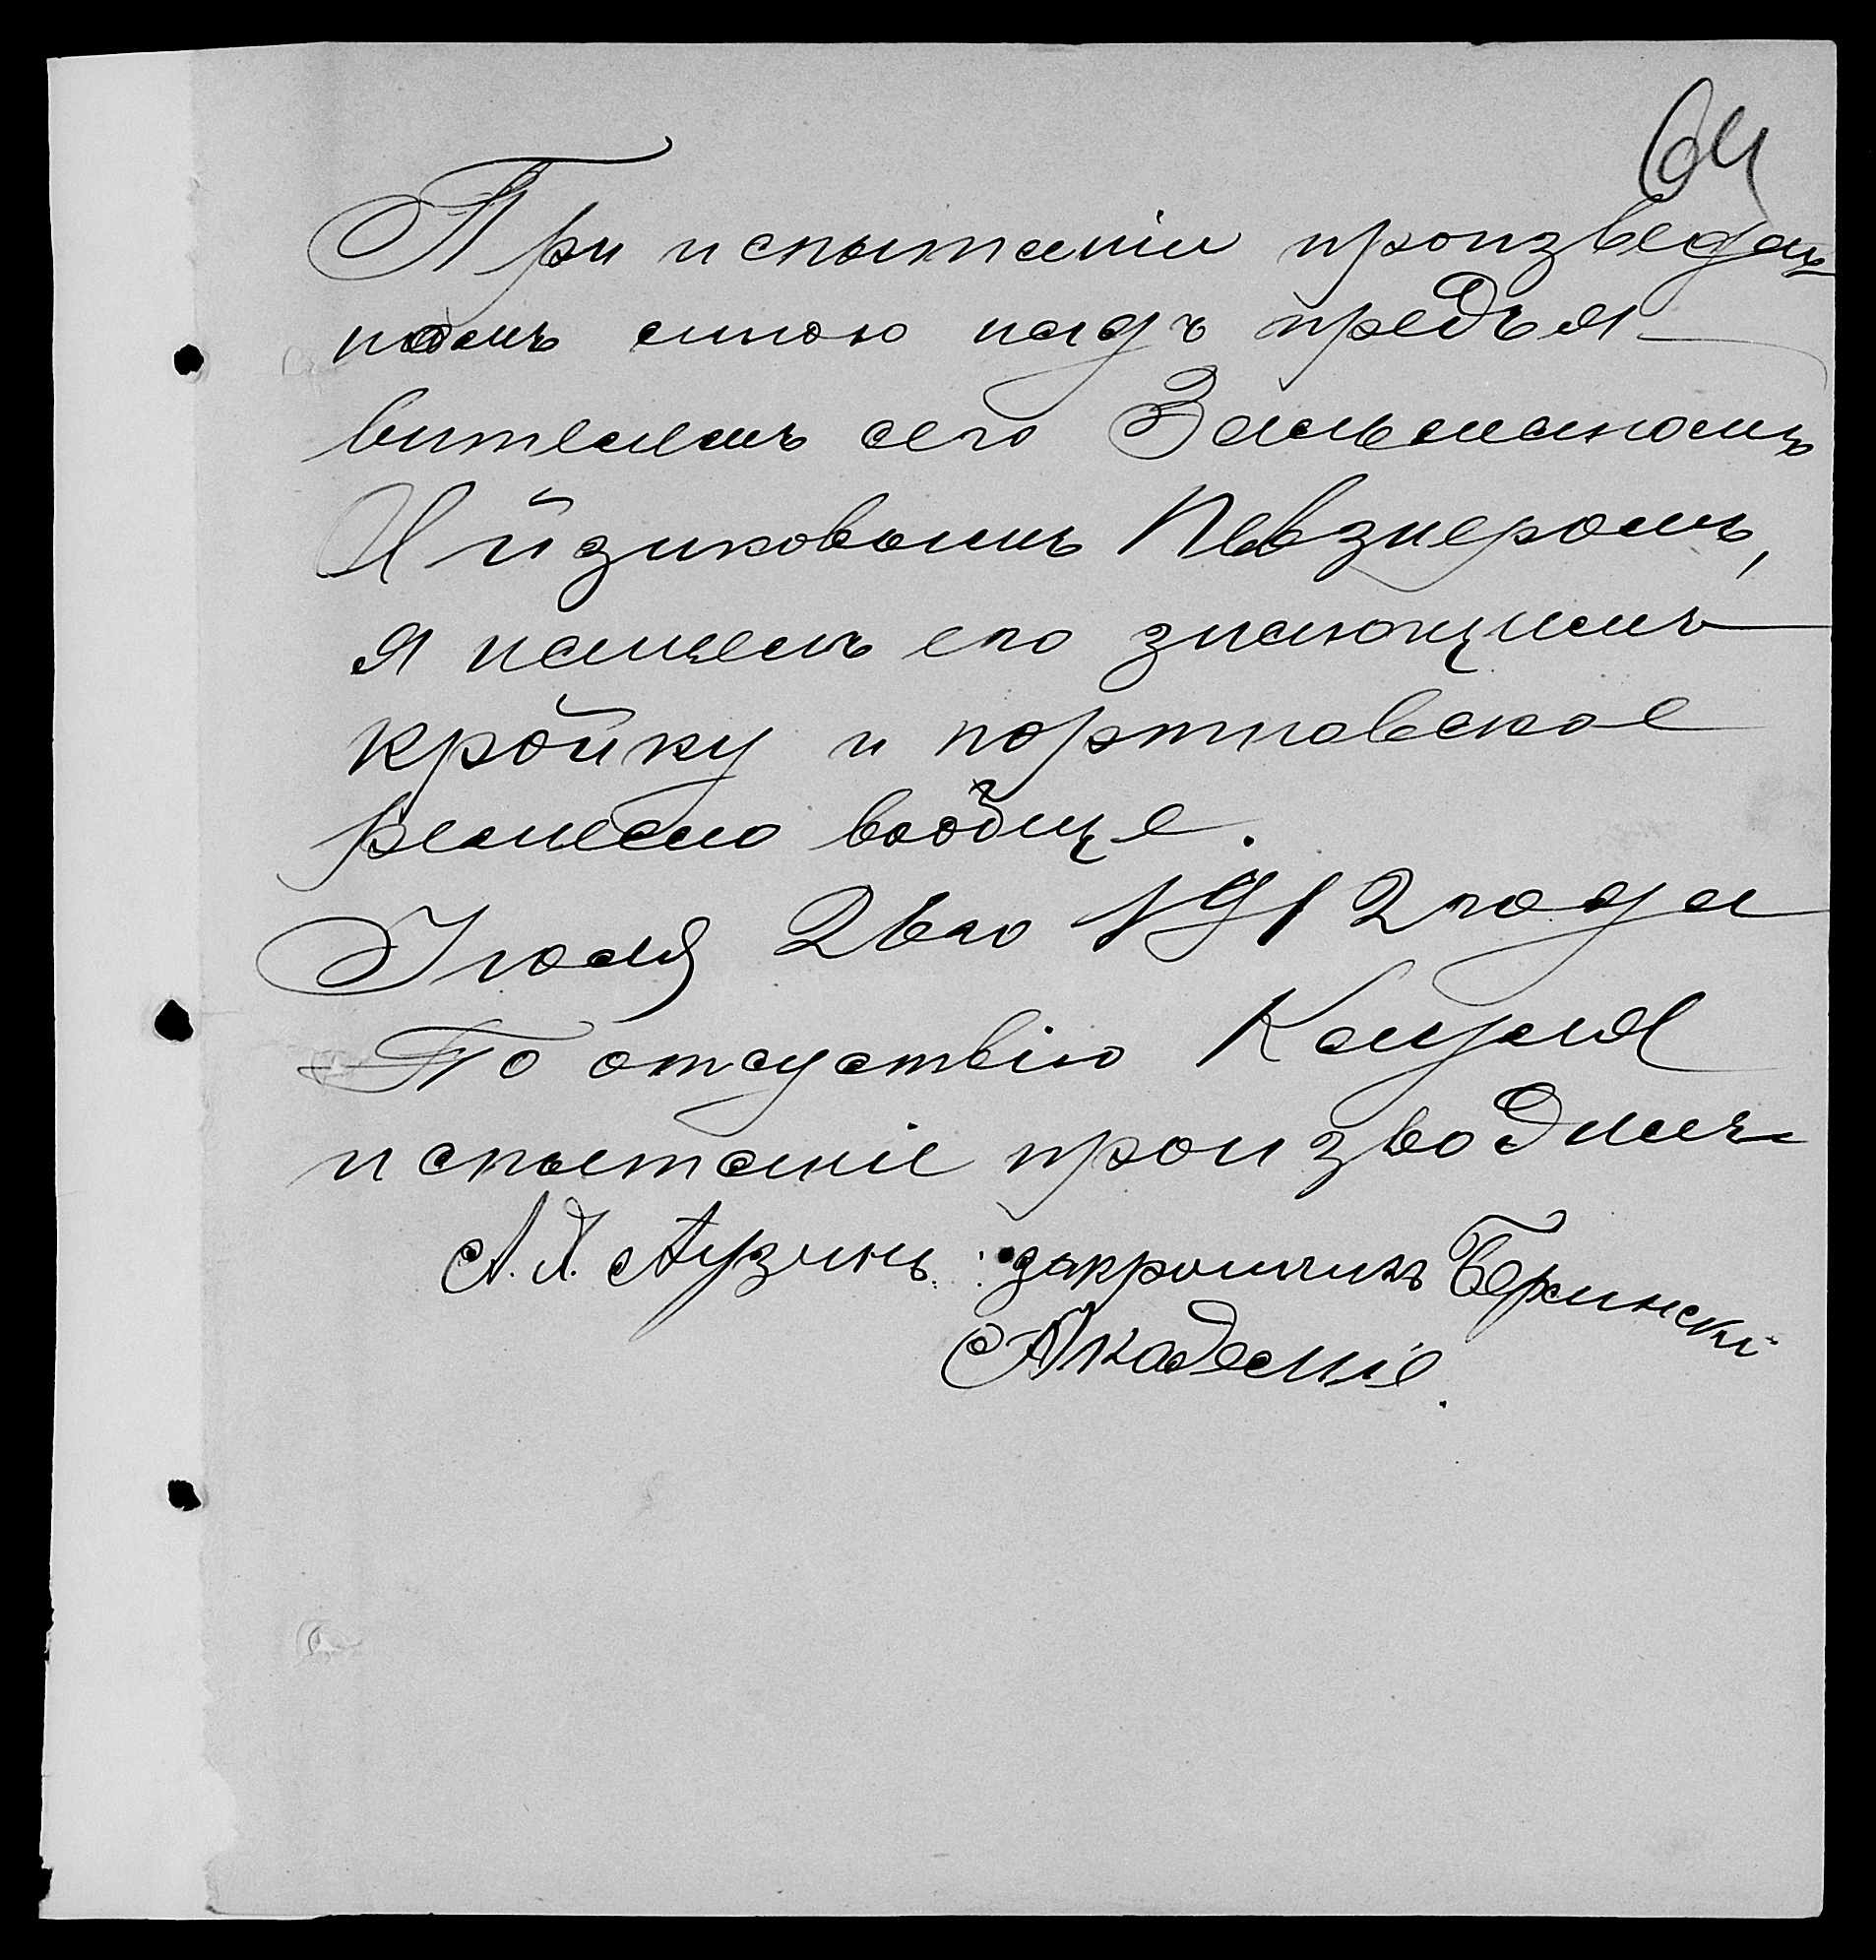 64
При испытаніи произведен-
номъ мною надъ предъя-
вителемъ сего Зальманомъ
Ийзиковымъ Певзнеромъ,
я нашелъ его знающимъ
кройку и портновское
ремесло вообще.
Іюля 26го 1912 года
По отсуствію Кацеля
испытаніе производилъ
А. Д. Аузинь. закройщикъ Берлинскі
Академіе.